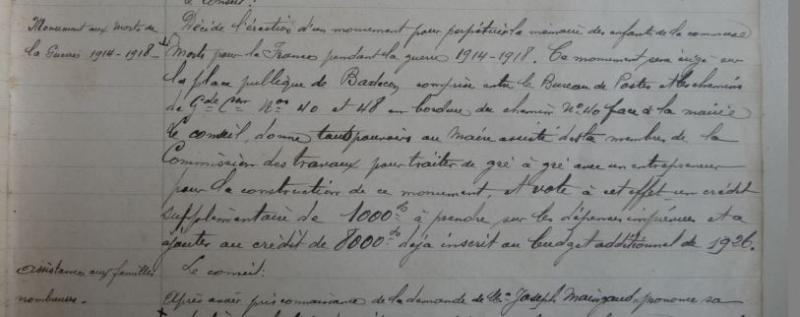 Le conseil:
Monument aux Morts de
la Guerre 1914-1918 -
Décide l'érection d'un monument pour perpétuer la mémoire des enfants de la commune
Morts pour la France pendant la guerre 1914-1918. Ce monument sera érigé sur
la place publique de comprise entre le Bureau de Postes et les chemins
de Gde Con Nos 40 et 48 en bordure du chemin No 40 face à la mairie
Le conseil, donne tous pouvoirs au Maire assisté des membres de la
Commission des travaux pour traiter de gré à gré avec un entrepreneur
pour la construction de ce monument, et vote à cet effet un crédit
supplémentaire de 1000 fs à prendre sur les dépenses imprévues et a
ajouter au crédit de 8000 fs déjà inscrit au budget additionnel de 1926.
assistance aux familles
nombreuses -
Le conseil:
Après avoir pris connaissance de la demande de Mr Joseph prononce sa